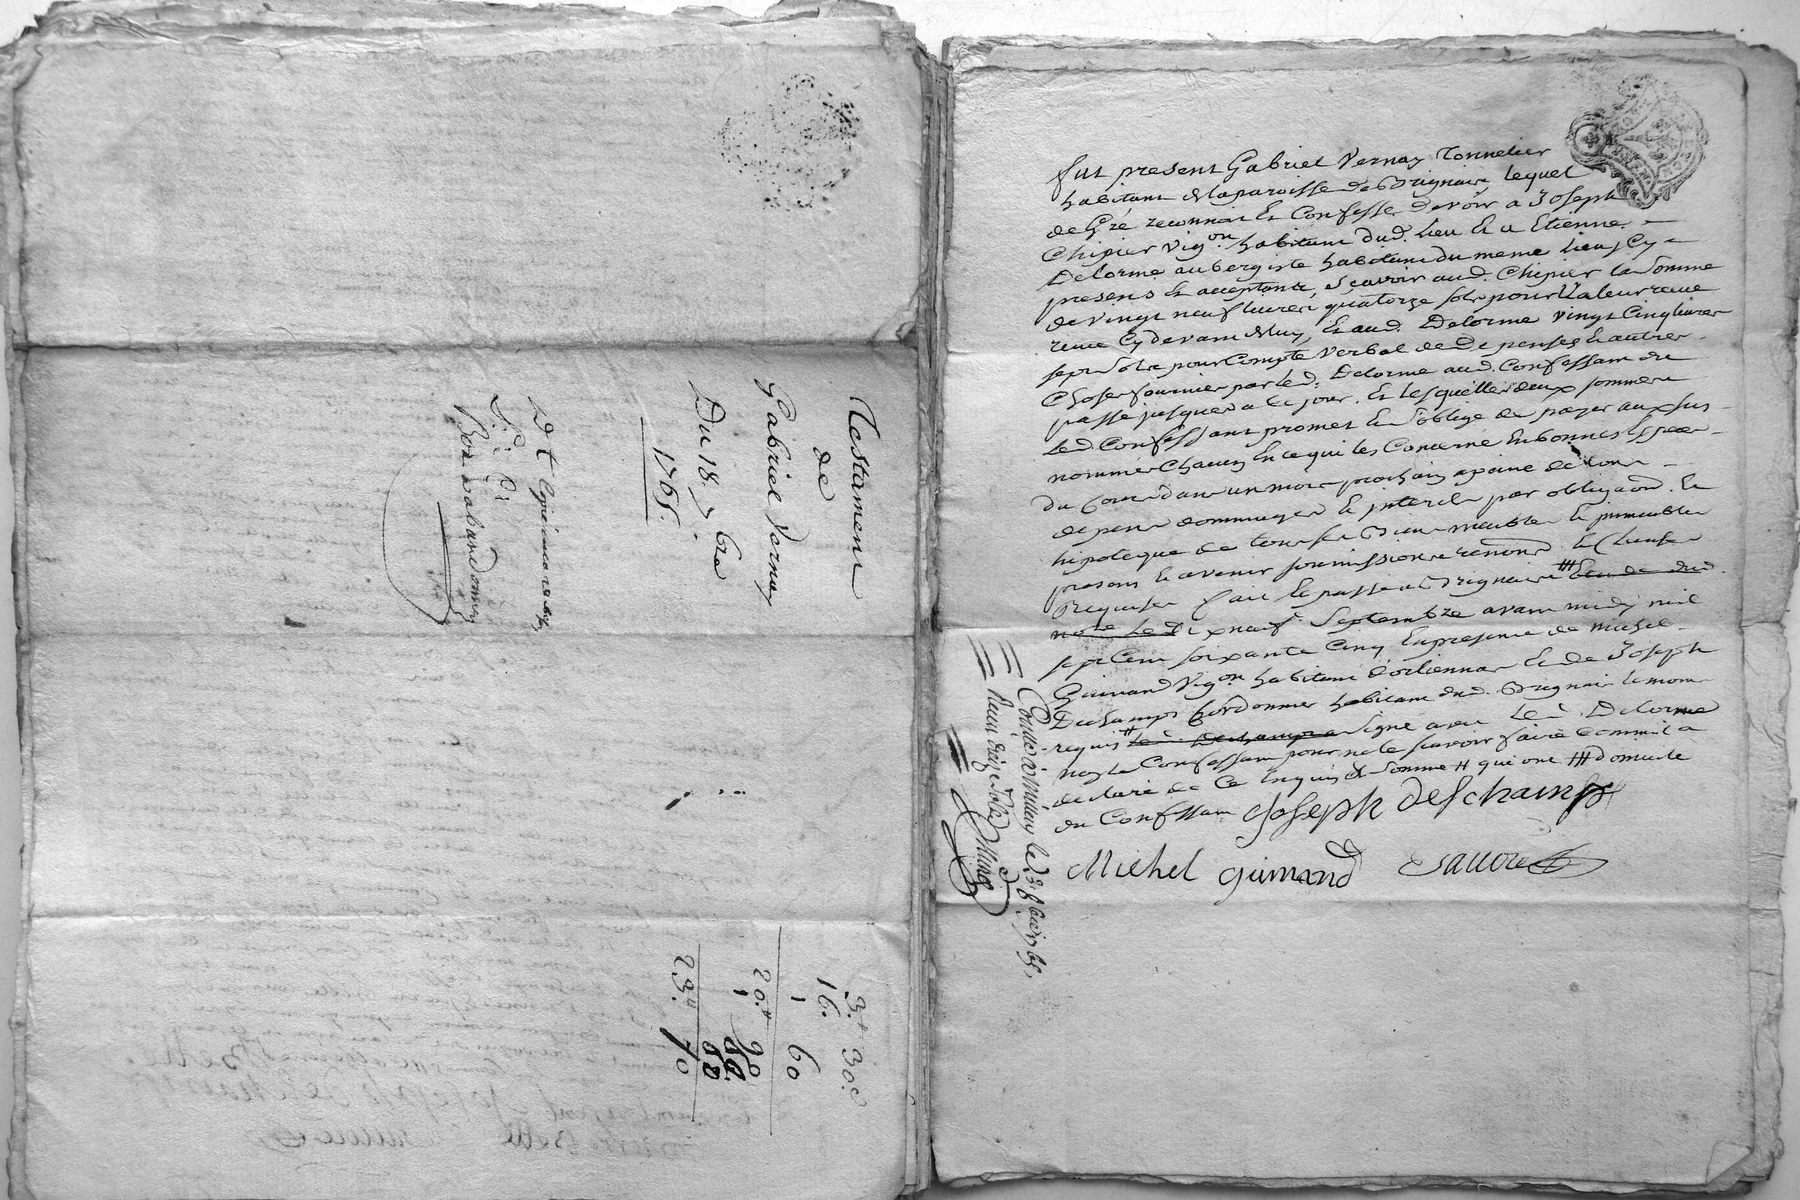 Testament
de
Gabriel Vernay
Du 18. 7bre
1765.
3.# 30.c
16. 60
1
20.# 90
23.# 70
fut present Gabriel Vernay Tonnelier
habitant de la paroisse de Brignais lequel
de Gré reconnoit et Confesse devoir a Joseph
Chipier Vig.on habitant dud. lieu et a Etienne
Delorme aubergiste habitant du meme lieu, Cy
presents et acceptants, scavoir aud. Chipier la Somme
de vingt neuf livres quatorze sols pour valeur reçue
Cy devant de luy, et aud. Delorme vingt Cinq livres
sept sols pour Compte verbal de Depenses et autres
Choses fournies par led. Delorme aud. Confessant du
passé jusques a ce jour, et lesquelles deux sommes
led. Confessant promet et s'oblige de payer aux sus
nommés Chacun en ce qui les Concerne en bonnes especes
du Cours dans un mois prochain a paine de tous
depens dommages et interets par obligaõn. et
hipoteque de tous ses Biens meubles et immeubles
presents et avenir soumissions renonõns. et Clauses
Requises fait et passé a Brignais ## etude dud.
note le Dix neuf Septembre avant midy mil
sept Cent soixante Cinq en presence de Michel
Guimand Vig.on habitant d'orlienas et de Joseph
Dechamps Cordonnier habitant dud. Brignais temoins
requis # led. Dechamps signé avec led. Delorme
non le Confessant pour ne le scavoir faire comme il a
declaré de Ce enquis et Sommé # qui ont ## domicile
du Confessant Joseph deschamps
Michel guimand
Controlé a